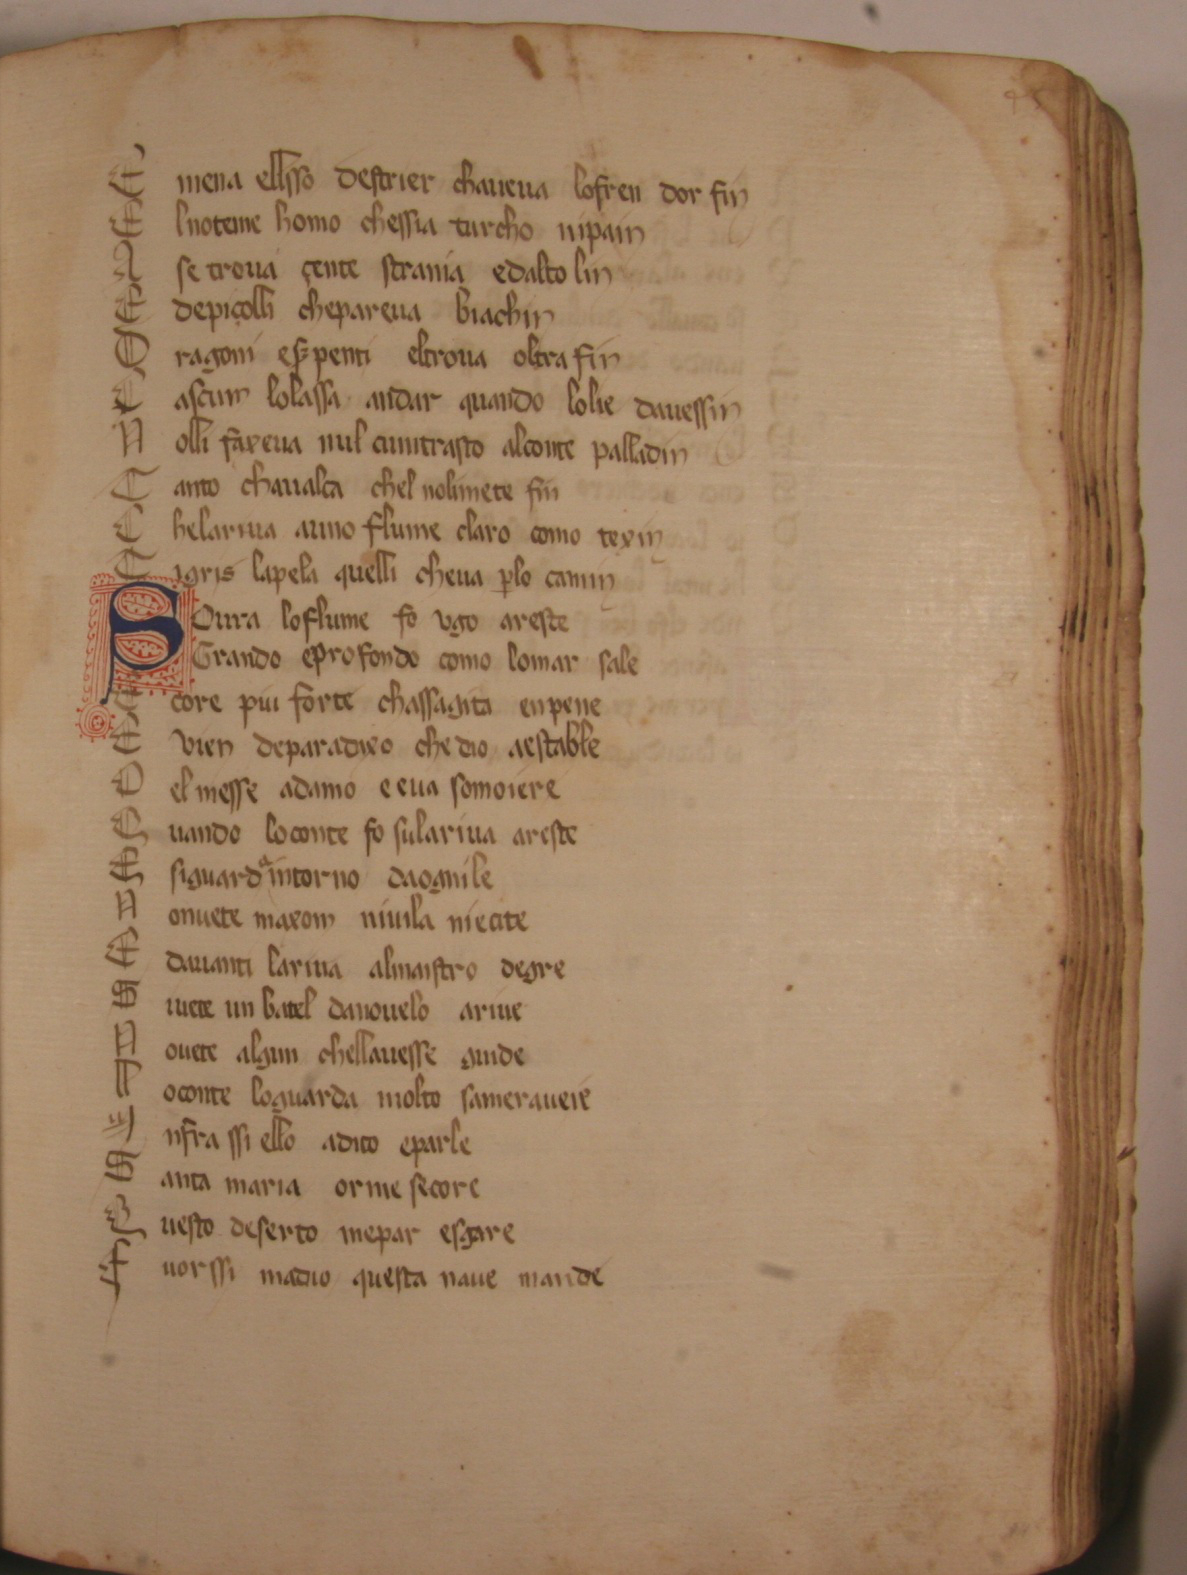 E mena ellsso destrier chaueua lofren dor fin
E lnoteme homo chessia turcho nipain
A se troua çente strania edalto lin
E depiçolli chepareua biachin
D ragoni es̲penti eltroua oltra fin
C ascun lolassa andar quando lolie dauessin
N olli faxeua nul cuntrasto alconte palladin
T anto chaualca chel nolimete fin
C helariua auno flume claro como texin
T igris lapela quelli cheua p̲lo camin
SOura loflume fo vgo areste
Grando eprofondo como lomar sale
E core piu forte chassagita enpene
E vien deparadixo chedio aestable
D el messe adamo e eua somoiere
Q uando loconte fo sulariua areste
E siguarda intorno daognile
N onuete maxon niuila niecite
E dauanti lariua almaistro degre
S iuete un batel danouelo ariue
N ouete algun chellauesse guide
L oconte loguarda molto sameraueie
I nfra ssi ello adito eparle
S anta maria orme secore
Q uesto deserto mepar esgare
F uorssi madio questa naue mande